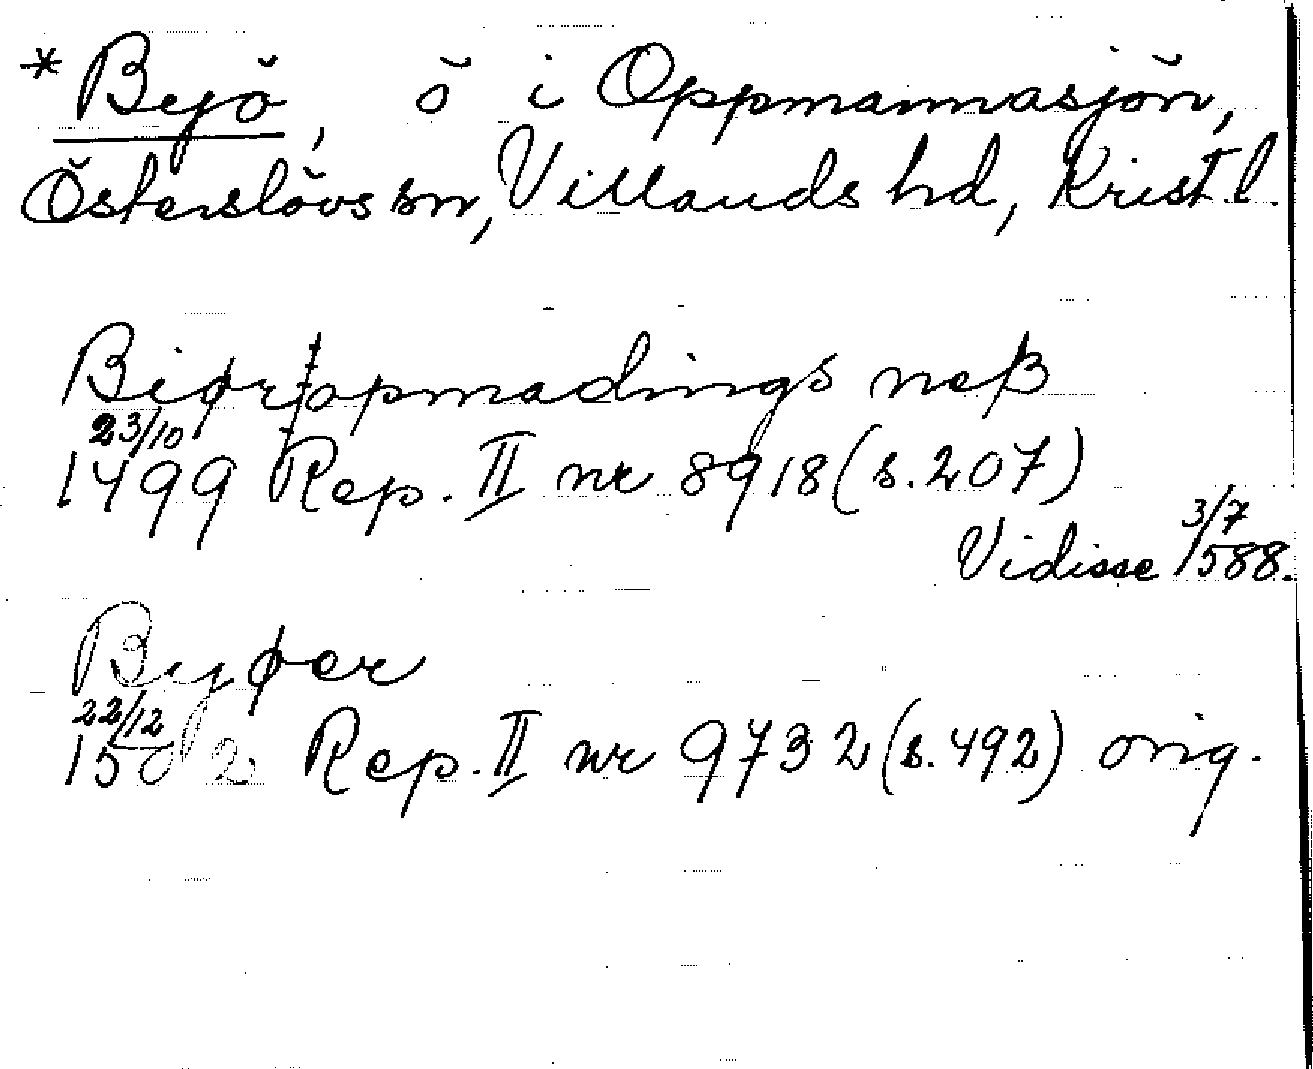 * Byö, ö i Oppmannasjön,
Österslövs sn, Villands hd, Krist. l.
Biør oppmadings neß
23/10
1499 Rep. II nr 8918 (s. 207)
Vidisse 3/7 1588.
Byøer
22/12
1502 Rep. II nr 9732 (s. 492) orig.